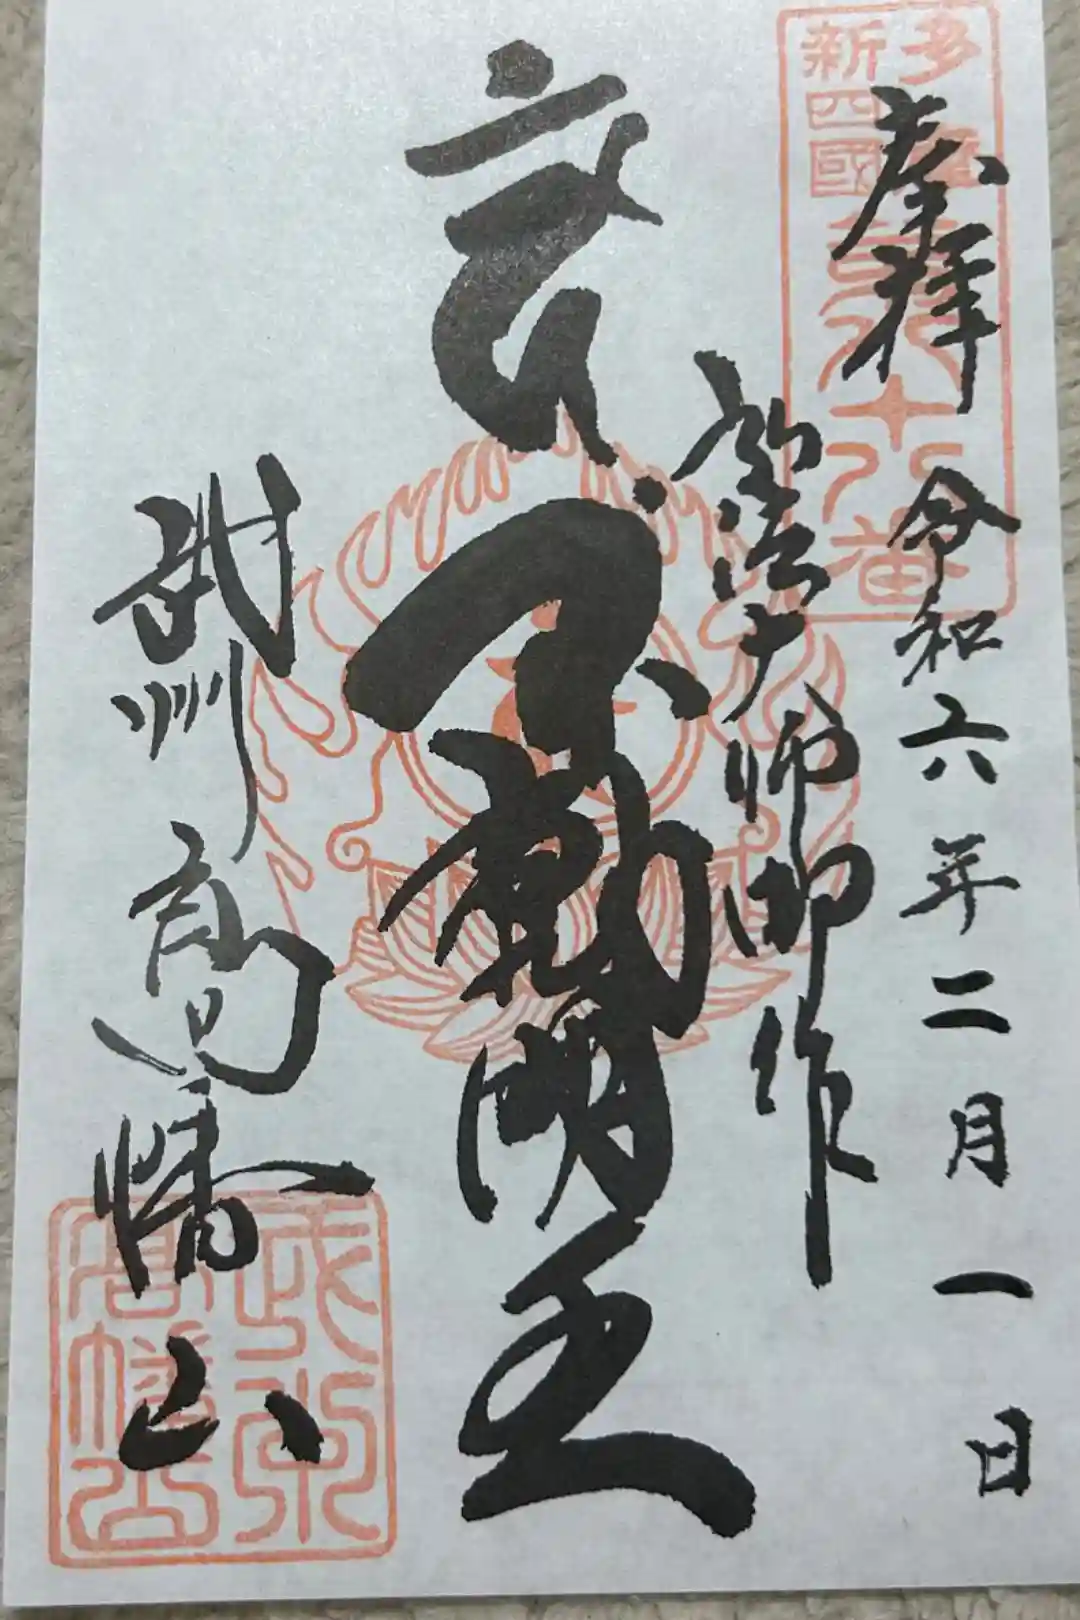 多摩
新四國
第八十八番
奉拝 令和六年二月一日
弘法大師御作
不動明王
武州高幡山
武州
高幡山